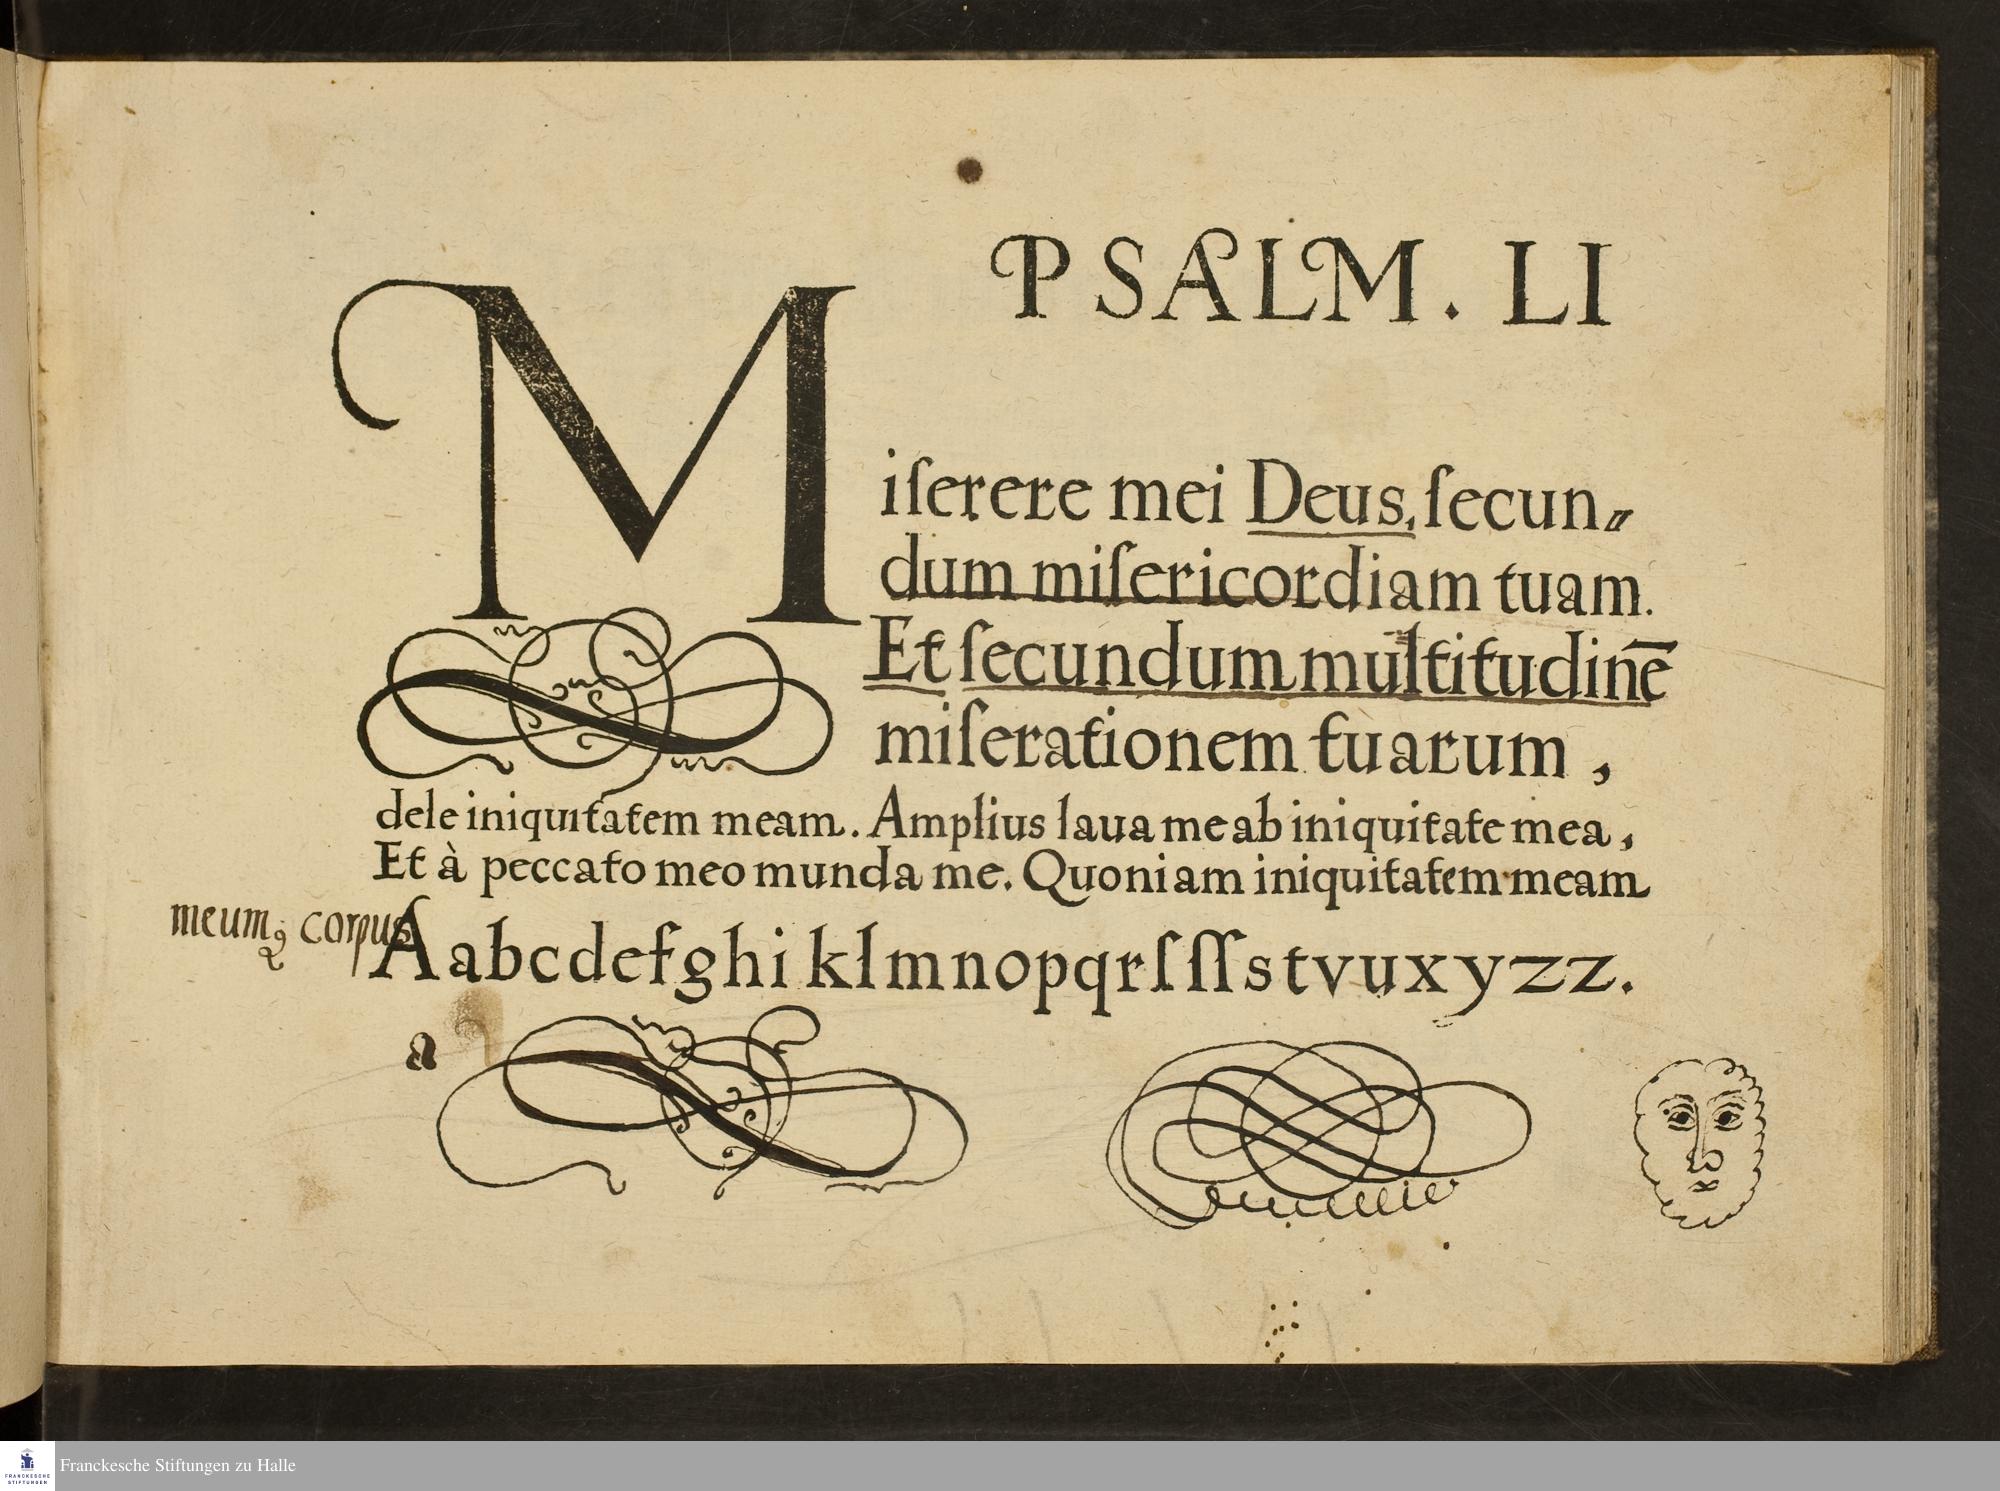 PSALM. LI
Miſerere mei Deus, ſecun⸗
dum miſericordiam tuam.
Et ſecundum multitudinē
miſerationem tuarum,
dele iniquitatem meam. Amplius laua me ab iniquitate mea,
Et à peccato meo munda me. Quoniam iniquitatem meam
meumq; corpus
A a b c d e f g h i k l m n o p q r ſ ſſ s t v u x y z z.
a
FRANCKESCHE STIFTUNGEN
Franckesche Stiftungen zu Halle